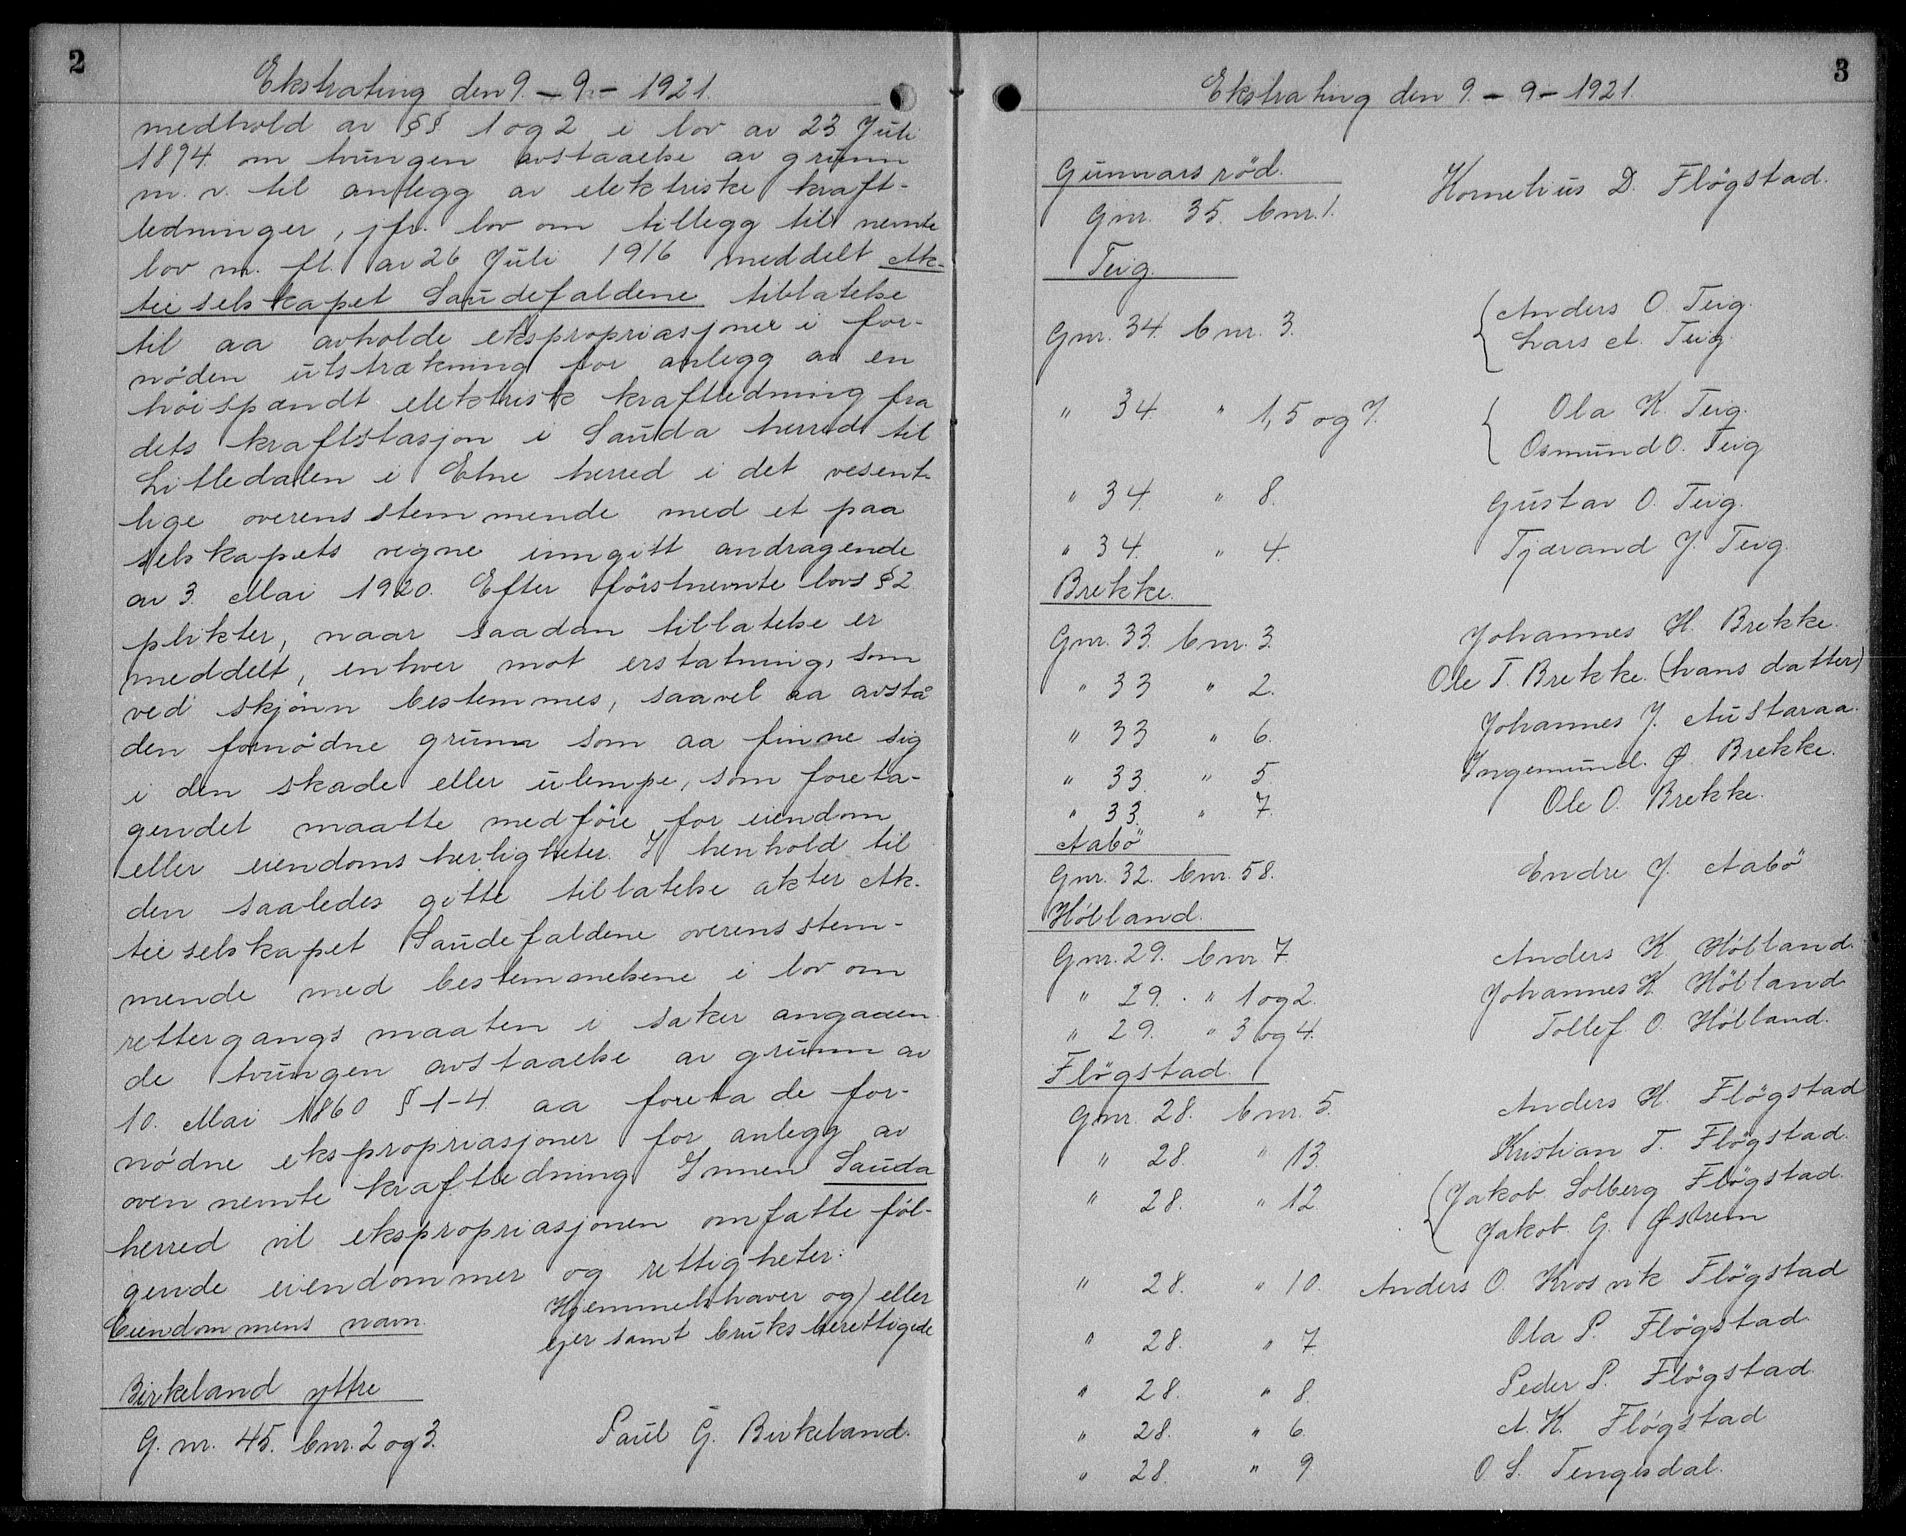 2
Ekstrating den 9. - 9 - 1921.
medhold av §§ 1 og 2 i lov av 23 Juli
1894 om tvungen avstaaelse av grunn
m. v. til anlegg av elektriske kraft-
ledninger, jfr. lov om tillegg til nevnte
lov m. fl. av 26 Juli 1916 meddelt Ak-
tieselskapet Saudefaldene tillatelse
til aa avholde ekspropriasjoner i for-
nöden utstrækning for anlegg av en
höispændt elektrisk kraftledning fra
dets kraftstasjon i Sauda herred til
Litledalen i Etne herred i det vesent-
lige overensstemmende med et paa
selskapets vegne inngitt andragende
av 3. Mai 1920. Efter förstnevnte lovs § 2
plikter, naar saadan tillatelse er
meddelt, enhver mot erstatning, som
ved skjönn bestemmes, saavel aa avstå
den fornödne grunn som aa finne sig
i den skade eller ulempe, som foreta-
gendet maatte medföre for eiendom
eller eiendomsherligheter. I henhold til
den saaledes gitte tillatelse akter Ak-
tieselskapet Saudefaldene overensstem-
mende med bestemmelsene i lov om
rettergangsmaaten i saker angaaen-
de tvungen avstaaelse av grunn av
10. Mai 1860 § 1-4 aa foreta de for-
nödne ekspropriasjoner for anlegg av
ovennevnte kraftledning. Innen Sauda
herred vil ekspropriasjonen omfatte föl-
gende eiendommer og rettigheter:
Eiendommens navn. Hjemmelshaver og) eller
ejer samt bruksberettigede
Birkeland yttre
G. nr. 45. bnr. 2 og 3. Paul G. Birkeland.
3
Ekstrating den 9. - 9 - 1921.
Gunnarsröd.
Gnr. 35. bnr. 1. Kornelius D. Flögstad.
Teig.
Gnr. 34. bnr. 3. Anders O. Teig.
Lars A. Teig.
" 34 " 1, 5 og 7. Ola K. Teig.
Osmund O. Teig
" 34. " 8. Gustav O. Teig.
" 34. " 4. Tjærand J. Teig.
Brekke.
Gnr. 33. bnr. 3. Johannes H. Brekke.
" 33 " 2. Ole T. Brekke. (hans datter)
" 33 " 6. Johannes J. Austaraa.
" 33. " 5. Ingemund. Ø. Brekke.
" 33. " 7. Ole O. Brekke.
Aabö
Gnr. 32. bnr. 58. Endre J. Aabö
Hölland.
Gnr. 29. bnr 7 Anders K. Hölland.
" 29. " 1 og 2. Johannes K. Hölland.
" 29. " 3 og 4. Tollef O. Hölland.
Flögstad.
Gnr. 28. bnr. 5. Anders H. Flögstad
" 28. " 13. Kristian T. Flögstad.
" 28. " 12 Jakob Solberg Flögstad.
Jakob G. Østrem
" 28. " 10. Anders O. Krosvik Flögstad
" 28. " 7. Ola P. Flögstad.
" 28. " 8. Peder P. Flögstad.
" 28. " 6. A. K. Flögstad
" 28. " 9. O. S. Tengesdal.